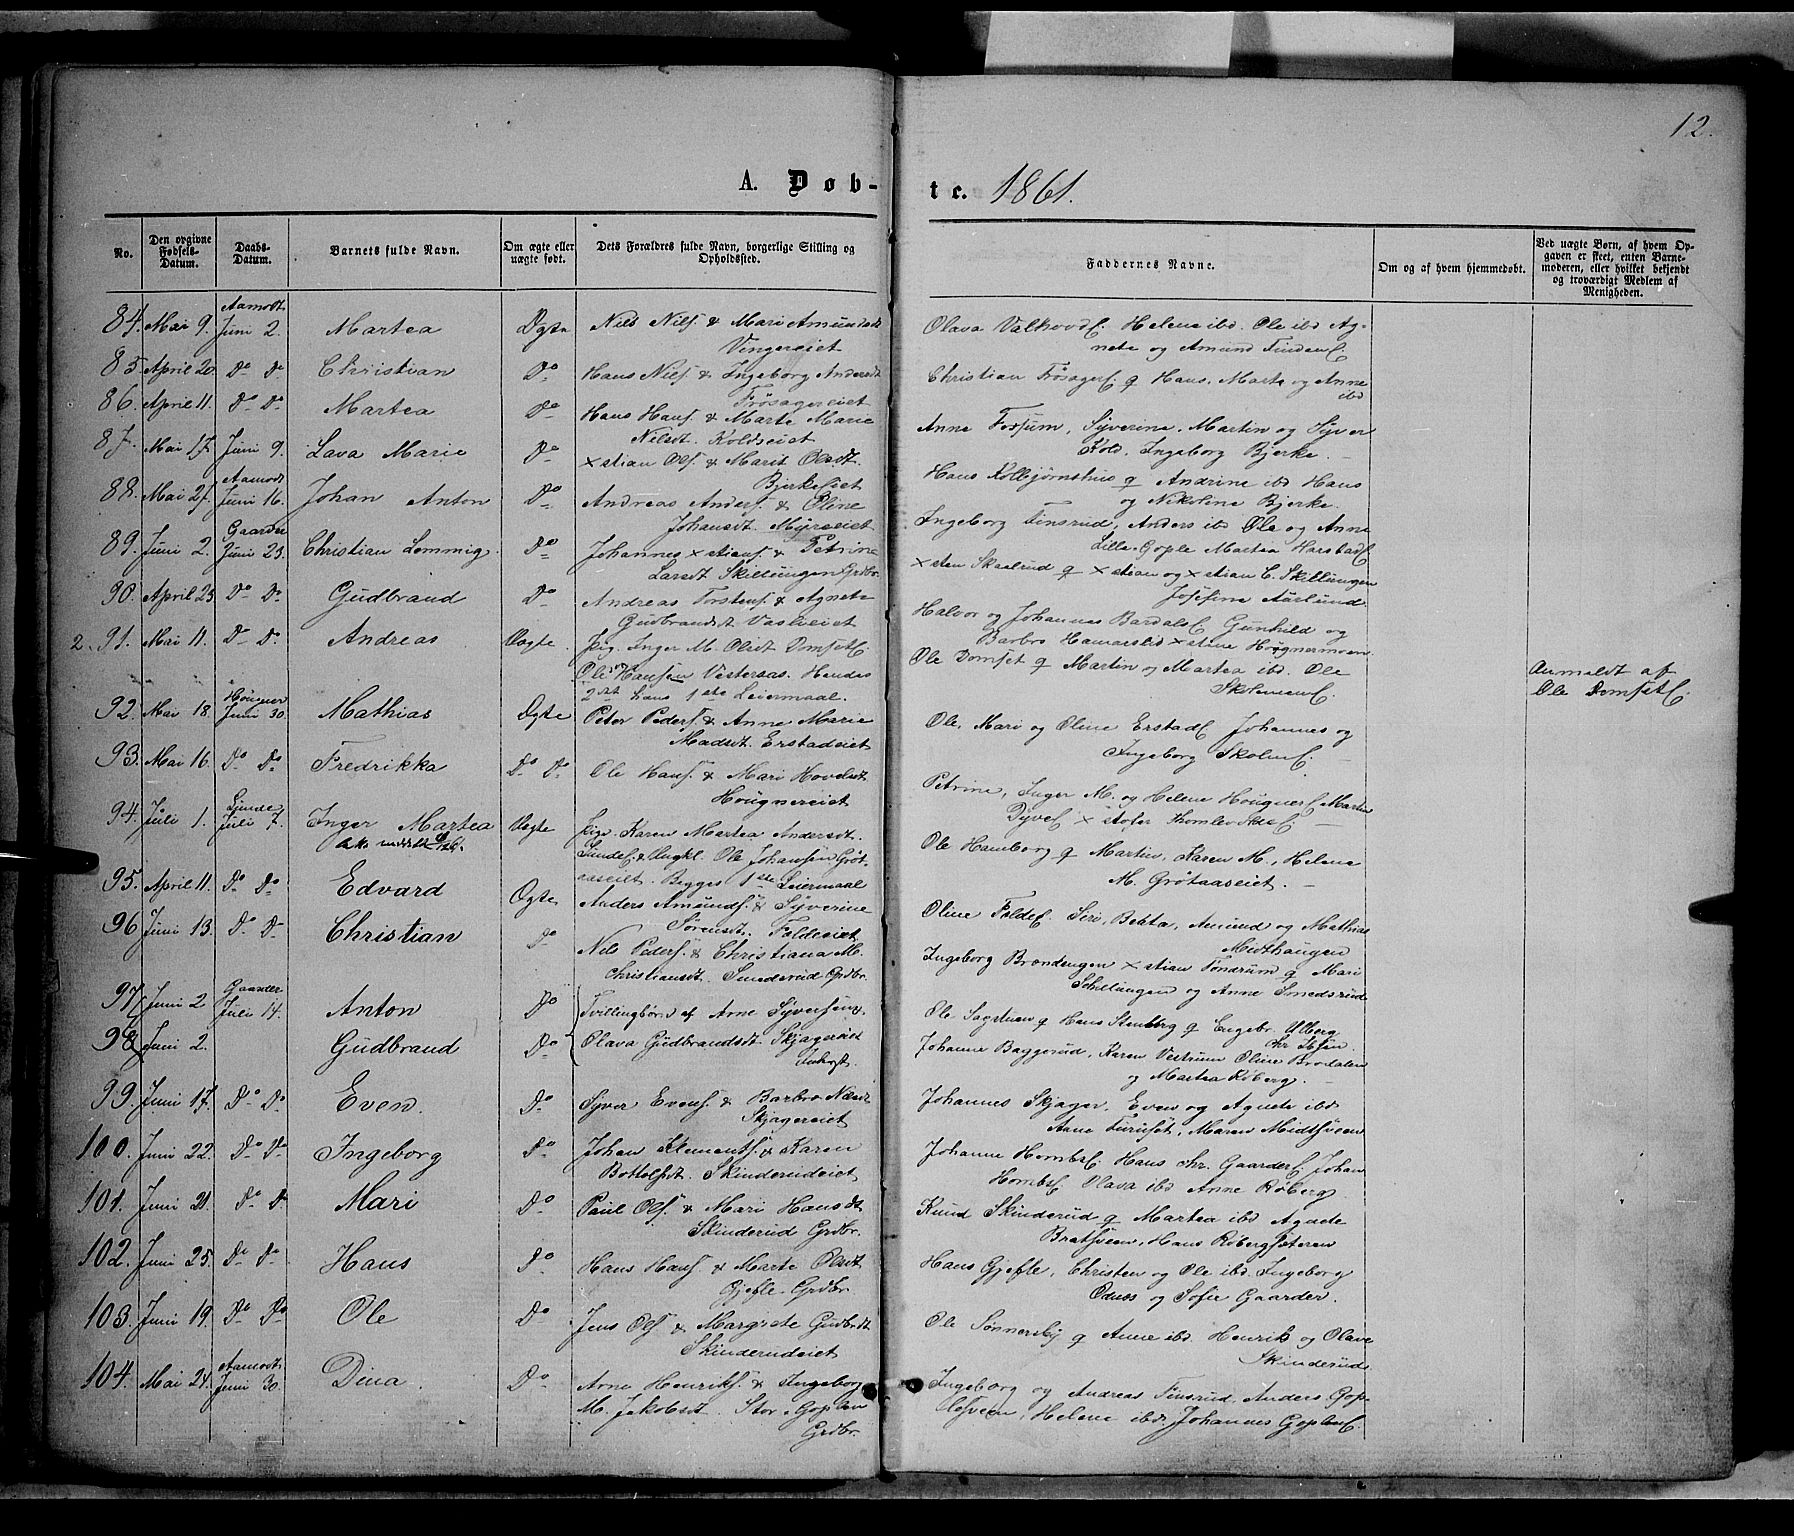 12.
A. Døb-
te. 1861.
No.
Den opgivne Fødsels-Datum.
Daabs-Datum.
Barnets fulde Navn.
Om ægte eller uægte født.
Dets Forældres fulde Navn, borgerlige Stilling og Opholdssted.
Faddernes Navne.
Om og af hvem hjemmedøbt.
Ved uægte Børn, af hvem Opgaven er skeet, enten Barnemoderen, eller hvilket bekjendt og troværdigt Medlem af Menigheden.
84. Mai 9. Aamodt Juni 2. Martea Ægte Nils Nils. & Mari Amundsdt
Vingereiet
Olava Valhovd Helene ibd. Ole ibd Ag-
nete og Amund
85. April 20. Do Do Christian Do Hans Nils. & Ingeborg Andersdt
Frösagereiet
Christian Frösager g Hans, Marte og Anne
ibd
86. April 11. Do Do Martea Do Hans Hans. & Marte Marie
Nilsdt. Koldseiet
Anne Fossum, Syverine, Martin og Syver
Kold, Ingeborg Bjerke.
87. Mai 17. Juni 9. Lava Marie Do xstian Ols. & Marit Olsdt.
Bjerkeeiet
Hans Kolbjørnshus g Andrine ibd Hans
og Nikoline Bjerke.
88. Mai 27. Aamodt Juni 16. Johan Anton Do Andreas Anders. & Oline
Johansdt. Myrseiet
Ingeborg Finsrud, Anders ibd Ole og Anne
Lille-Gople Martea
89. Juni 2. Gaarder Juni 23. Christian Lemmig. Do Johannes xstians. & Petrine
Larsdt Skillingen Grdbr.
xsten Skaalrud g xstian og xstian C. Skillingen
Josefine Aarlund
90. April 25 Do Do Gudbrand Do Andreas Torstens. & Agnete
Gudbrandsdt Vaslieeiet
Halvor og Johannes Bardals Gunhild og
Barbro Hamarslid xstine Hougnermoen
2. 91. Mai 11. Do Do Andreas Uægte. Pig. Inger M. Olsdt Domset
Ole Hansen Vestersas. Hendes
2det hans 1ste Leiermaal.
Ole Domset g Martin og Martea ibd. Ole
Skolmen
Anmeldt af
Ole Domset
92. Mai 18. Hougner Juni 30. Mathias Ægte Peter Peders. & Anne Marie
Madsdt. Erstadeiet
Ole, Mari og Oline Erstad Johannes og
Ingeborg Skolm
93. Mai 16. Do Do Fredrikka Do Do Ole Hans. & Mari Hovelsdt
Hougnereiet
Petrine, Inger M. og Helene Hougner Martin
Dyve xstofer
94. Juli 1. Lunde Juli 7. Inger Martea Uægte Pige Karen Martea Andersdt.
Lunde & Ungkl. Ole Johansen Gröt-
aaseiet. Begges 1ste Leiermaal
Ole Hamborg g Martin, Karen M., Helene
M. Grötaaseiet.
95. April 11. Do Do Edvard Ægte Anders Amunds. & Syverine
Sörensdt. Foldeeiet
Oline Folde Seri, Behta, Amund og Mathias
Midthaugen
96 Juni 13. Do Do Christian Do Nils Peders. & Christiana M.
Christiansdt. Smedsrud Grdbr.
Ingeborg Brendengen xstian Tondrum g Mari
Schillingen og Anne Smedsrud
97 Juni 2 Gaarder Juli 14. Anton Do Tvillingbørn af Arne Syversen
Ole Sagstuen g Hans Stenberg g Engebr. Ulberg
98 Juni 2. Gudbrand Do Olava Gudbrandsdt. Skjagereiet
Inhst.
Johanne Baggerud, Karen Vestrum Oline Brodalen
og Martea Röberg.
99. Juni 17. Do Do Even. Do Syver Evens. & Barbro
Skjagereiet
Johannes Skjager, Even og Agnete ibd
Anne Furusöt, Maren Midtsveen
100. Juni 22. Do Do Ingeborg Do Johan Klements. & Karen
Bottolfsdt. Skinderudeiet
Johanne Homb Hans Chr. Gaarder Johan
Homb Olava ibd Anne Röberg.
101. Juni 21. Do Do Mari Do Paul Ols. & Mari Hansdt
Skinderud Grdbr.
Knud Skinderud g Martea ibd Agnete
Bratsveen, Hans Röbergsæteren
102. Juni 25. Do Do Hans Do Hans Hans. & Marte Olsdt
Gjefle. Grdbr.
Hans Gjefle, Christen og Ole ibd. Ingeborg
Odnes og Sofie Gaarder.
103. Juni 19. Do Do Ole Do Jens Ols. & Margrete Gudbrdt
Skinderudeiet
Ole Sønnersby g Anne ibd Henrik og Olave
Skinderud
104. Mai 24. Aamodt Juni 30. Dina Do Arne Henriks. & Ingeborg
M. Jakobsdt. Stor-Goplen
Grdbr.
Ingeborg og Andreas Finsrud, Anders Gop-
lesveen, Helene ibd. Johannes Goplen